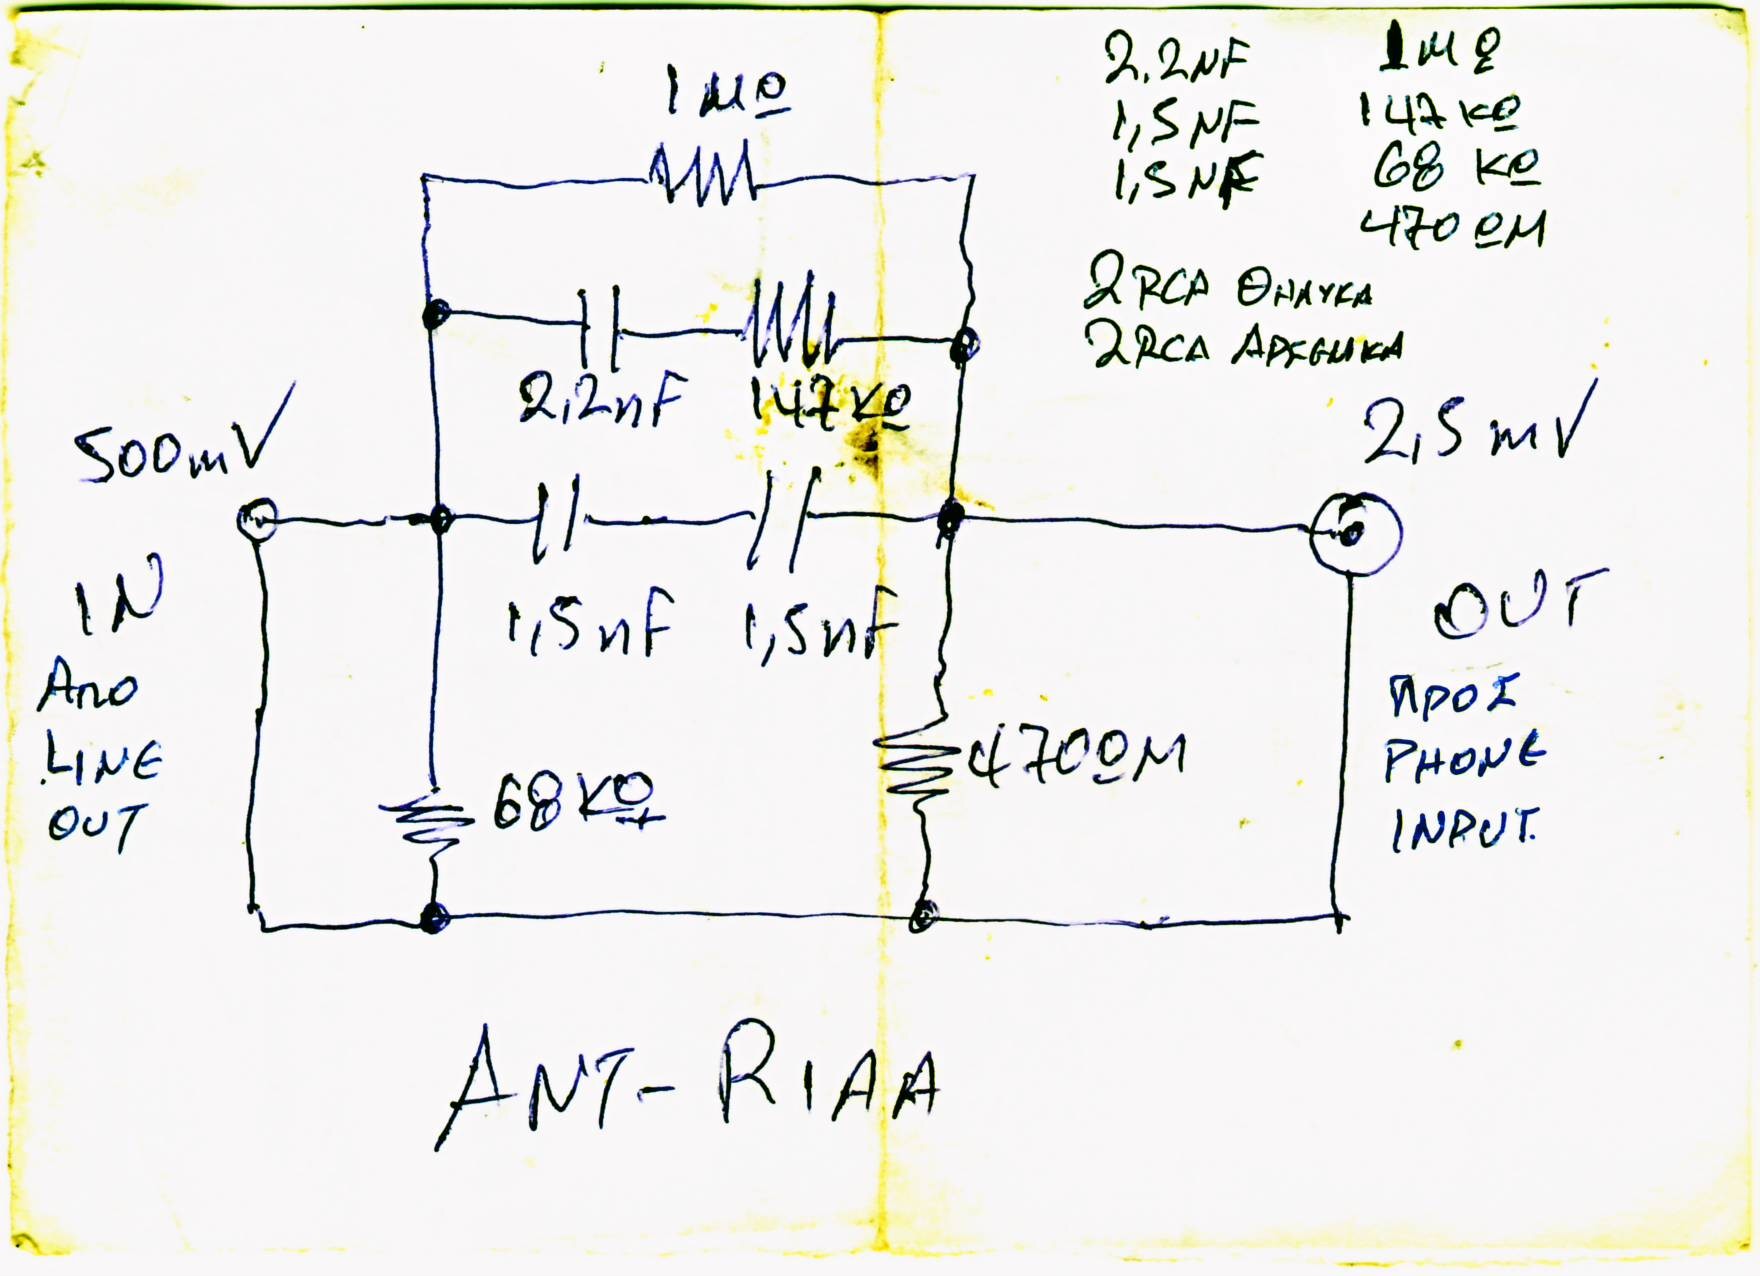 1MΩ
2,2nF
147KΩ
500mV
IN
Απο
LINE
OUT
1,5nF
1,5nF
68KΩ
470ΩM
2,2NF
1,5NF
1,5NF
1MΩ
147KΩ
68 KΩ
470ΩM
2RCA ΘΗΛΥΚΑ
2RCA ΑΡΣΕΝΙΚΑ
2,5mV
OUT
ΠΡΟΣ
PHONE
INPUT.
ANT-RIAA